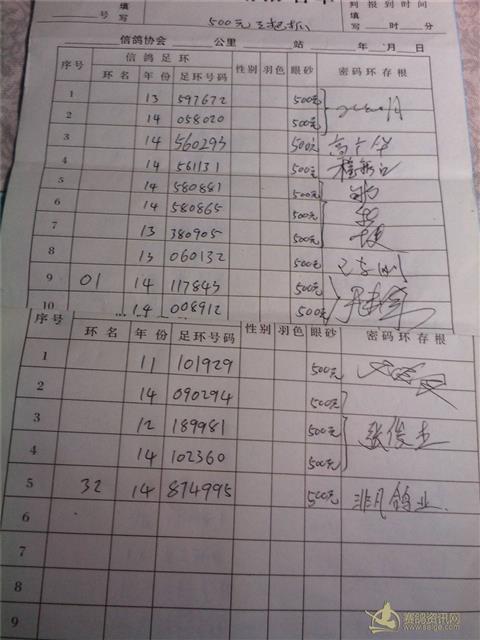 号 填写 500元 判报到时间 填写 时 分
信鸽协会 公里 站 年 月 日
序号 信鸽足环 性别 羽色 眼砂 密码环存根
环名 年份 足环号码
1 13 597672 500元
2 14 058020 500元
3 14 560293 500元
4 14 561131 500元
5 14 580881 500元
6 14 580865 500元
7 13 380905 500元
8 13 060132 500元
9 01 14 117843 500元
10 14 008912 500元
序号 环名 年份 足环号码 性别 羽色 眼砂 密码环存根
1 11 101929 500元
2 14 090294 500元
3 12 189981 500元 张俊杰
4 14 102360 500元
5 32 14 874995 500元 非凡鸽业
6
7
8
9
赛鸽资讯网
www.saige.com